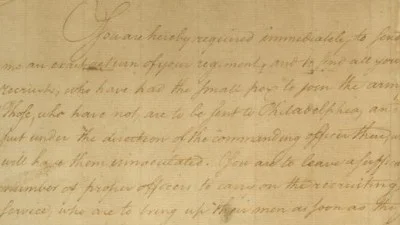 You are hereby required immediately to send
me an exact return of your regiment, and to send all your
recruits, who have had the small pox to join the army
Those, who have not are to be sent to Philadelphia, and
put under the direction of the commanding officer there, who
will have them inoculated. You are to leave a sufficient
number of proper officers to carry on the recruiting
service, who are to bring up their men as soon as they